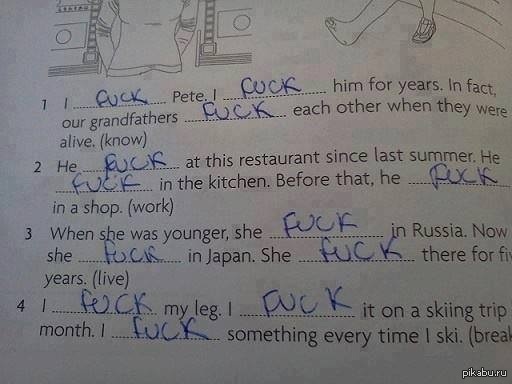 1 I fuck Pete. I fuck him for years. In fact,
our grandfathers fuck each other when they were
alive. (know)
2 He fuck at this restaurant since last summer. He
fuck in the kitchen. Before that, he fuck
in a shop. (work)
3 When she was younger, she fuck in Russia. Now
she fuck in Japan. She fuck there for fiv
years. (live)
4 I fuck my leg. I fuck it on a skiing trip
month. I fuck something every time I ski. (break
pikabu.ru